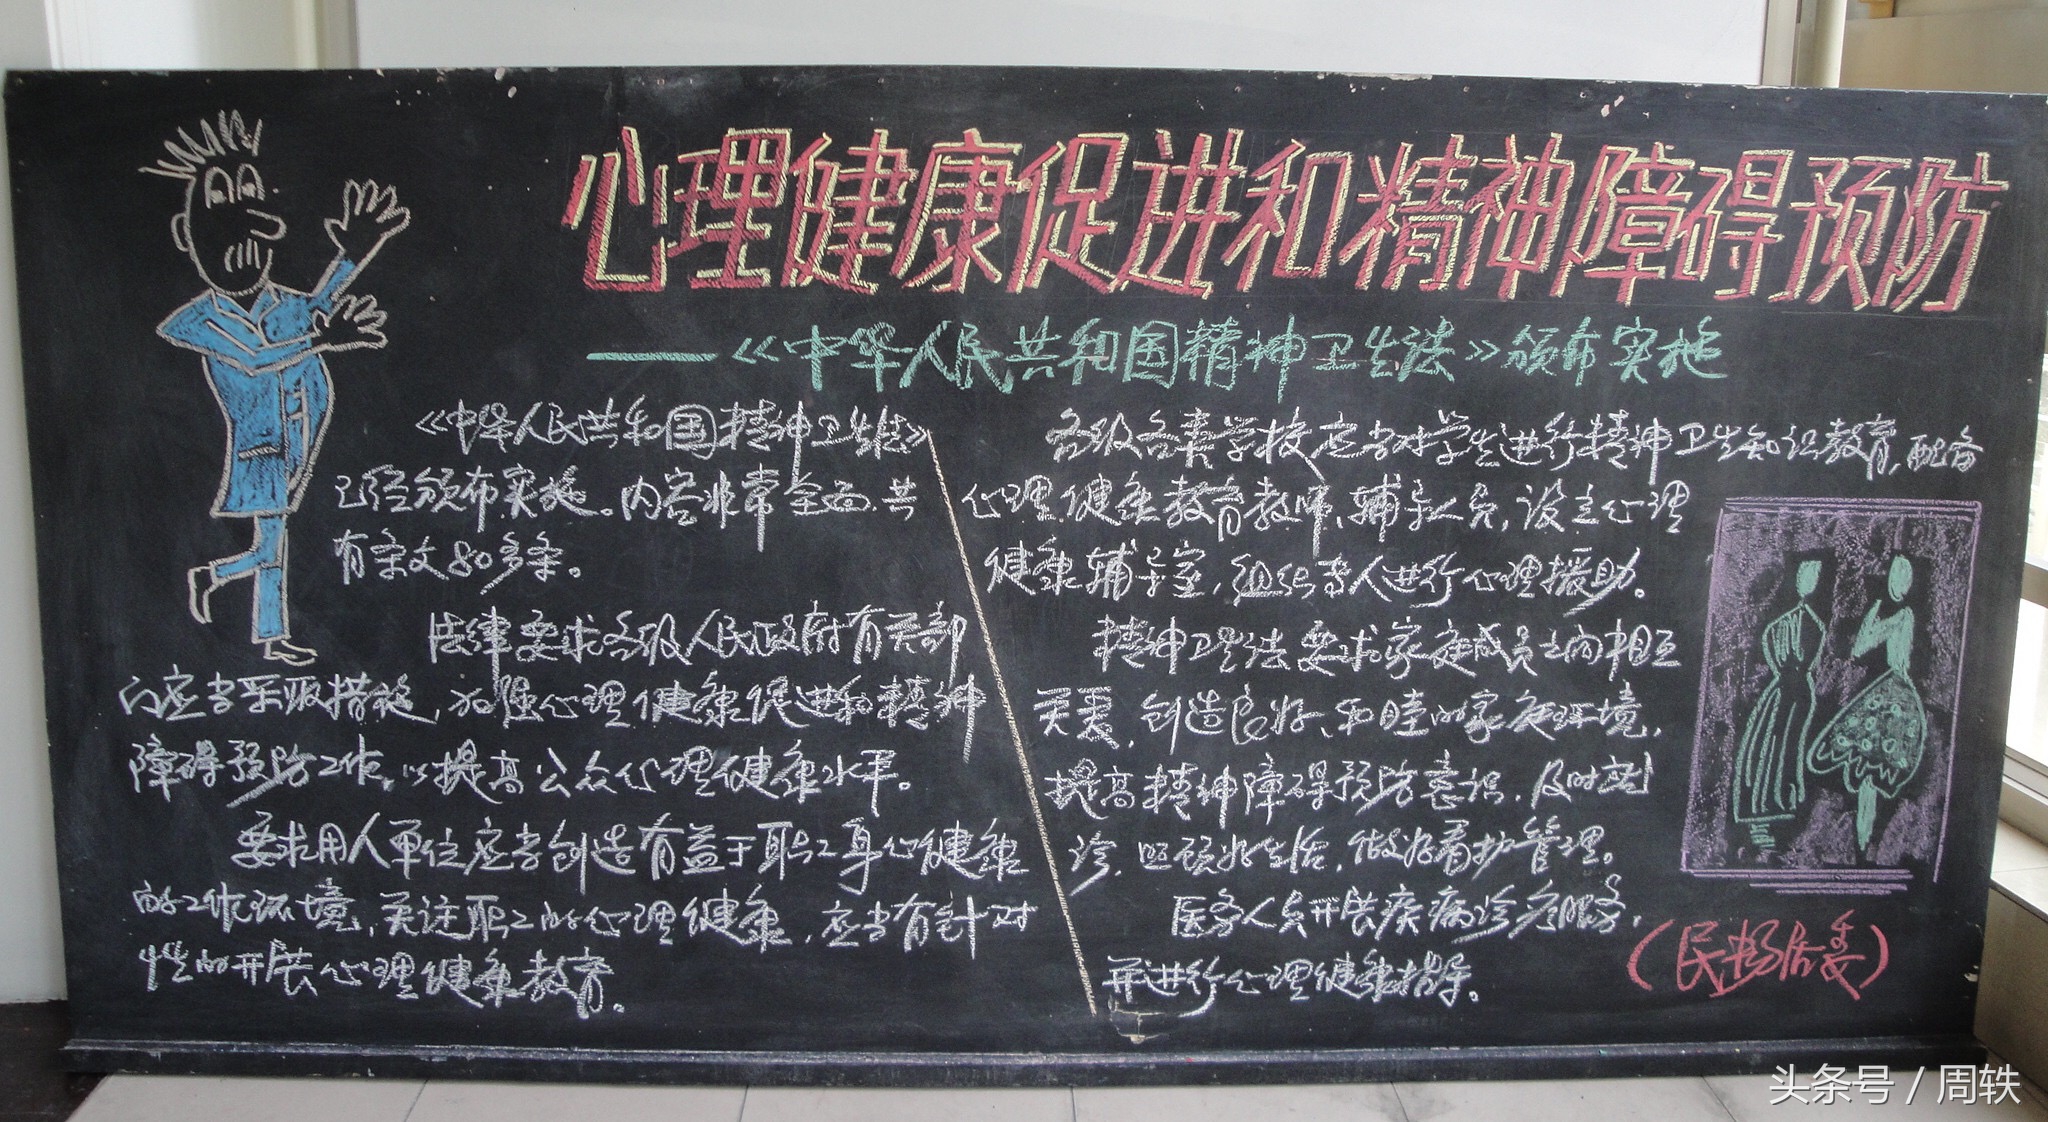 心理健康促进和精神障碍预防
——《中华人民共和国精神卫生法》颁布实施
《中华人民共和国精神卫生法》
已经颁布实施。内容非常全面.共
有条文80多条。
法律要求各级人民政府有关部
门应当采取措施,加强心理健康促进和精神
障碍预防工作,以提高公众心理健康水平。
要求用人单位应当创造有益于职工身心健康
的工作环境,关注职工的心理健康,应当有针对
性的开展心理健康教育。
各级各类学校应当对学生进行精神卫生知识教育,配备
心理健康教育教师、辅导人员,设立心理
健康辅导室,组织专人进行心理援助。
精神卫生法要求家庭成员之间相互
关爱,创造良好、和睦的家庭环境,
提高精神障碍预防意识.及时就
诊.照顾好生活,做好看护管理。
医务人员开展疾病诊疗服务,
并进行心理健康指导。
(民杨居委)
头条号 / 周轶